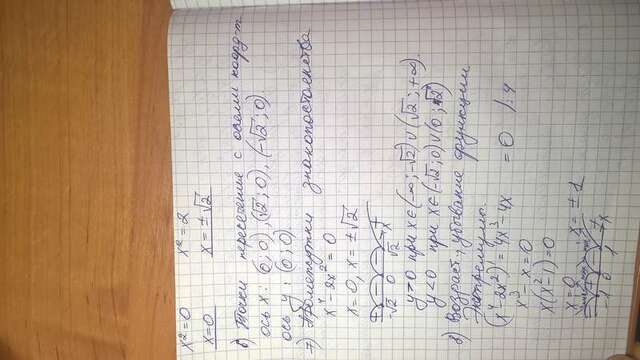 x²=0 x²=2
x=0 x=±√2
6) Точки пересечение с осями коорд-т
ось x: (0;0), (√2;0), (-√2;0)
ось y: (0;0)
7) Промежутки знакопостоянства
x⁴-2x²=0
x=0, x=±√2
+ - - +
-√2 0 √2 x
y>0 при x∈(-∞;-√2)∪(√2;+∞).
y<0 при x∈(-√2;0)∪(0;√2)
8) Возраст., убывание функции
Экстремумы.
(x⁴-2x²)'=4x³-4x =0 /:4
x³-x=0
x(x²-1)=0
x=0 ; x=±1
-1 0 1 x